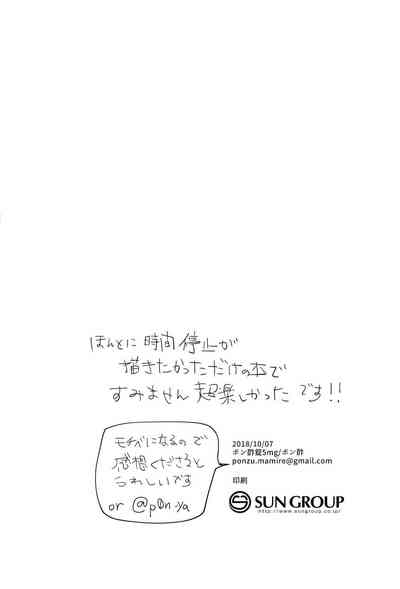 ほんとに 時間 停止が
描きたかっただけの本で
すみません 超楽しかった です!!
モチベになるので
感想くださると
うれしいです
or @p0n
2018/10/07
ポン酢錠5mg/ポン酢
ponzu.mamiro@gmail.com
印刷
SUN GROUP
http://www.sungroup.co.jp/